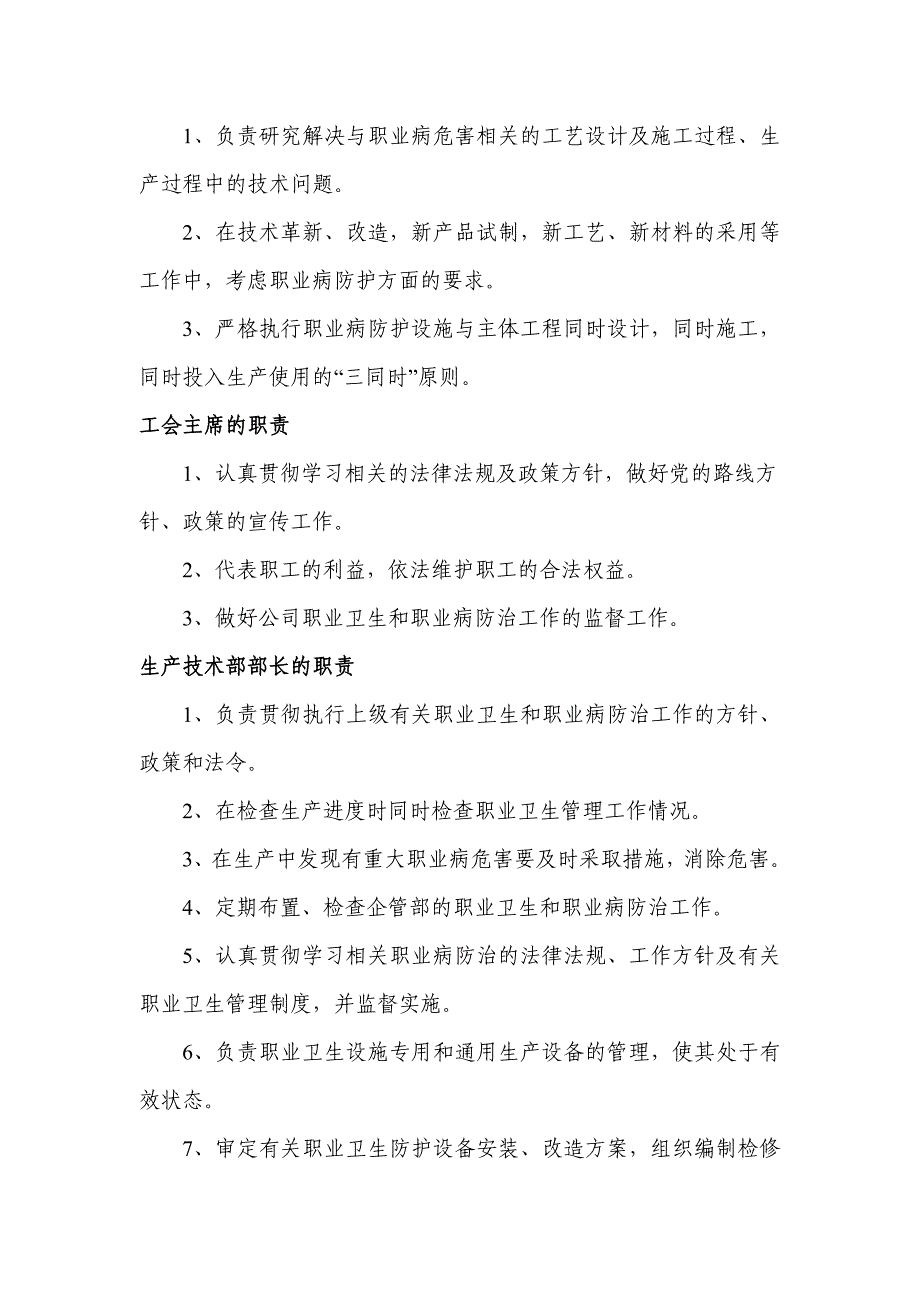 1、负责研究解决与职业病危害相关的工艺设计及施工过程、生
产过程中的技术问题。
2、在技术革新、改造，新产品试制，新工艺、新材料的采用等
工作中，考虑职业病防护方面的要求。
3、严格执行职业病防护设施与主体工程同时设计，同时施工，
同时投入生产使用的“三同时”原则。
工会主席的职责
1、认真贯彻学习相关的法律法规及政策方针，做好党的路线方
针、政策的宣传工作。
2、代表职工的利益，依法维护职工的合法权益。
3、做好公司职业卫生和职业病防治工作的监督工作。
生产技术部部长的职责
1、负责贯彻执行上级有关职业卫生和职业病防治工作的方针、
政策和法令。
2、在检查生产进度时同时检查职业卫生管理工作情况。
3、在生产中发现有重大职业病危害要及时采取措施，消除危害。
4、定期布置、检查企管部的职业卫生和职业病防治工作。
5、认真贯彻学习相关职业病防治的法律法规、工作方针及有关
职业卫生管理制度，并监督实施。
6、负责职业卫生设施专用和通用生产设备的管理，使其处于有
效状态。
7、审定有关职业卫生防护设备安装、改造方案，组织编制检修